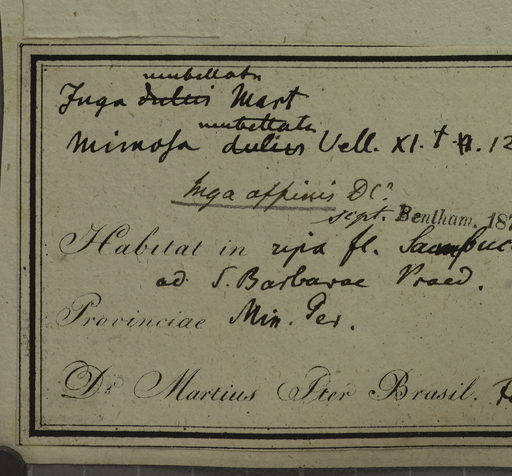 umbellata
Inga dulcis Mart
umbellata
Mimosa dulcis Vell. XI. t. 12
Inga affinis DC.
script. Bentham. 187
Habitat in ripa fl.
ad S. Barbarae Praed.
Provinciae Min. Ger.
Dr. Martius Iter Brasil.